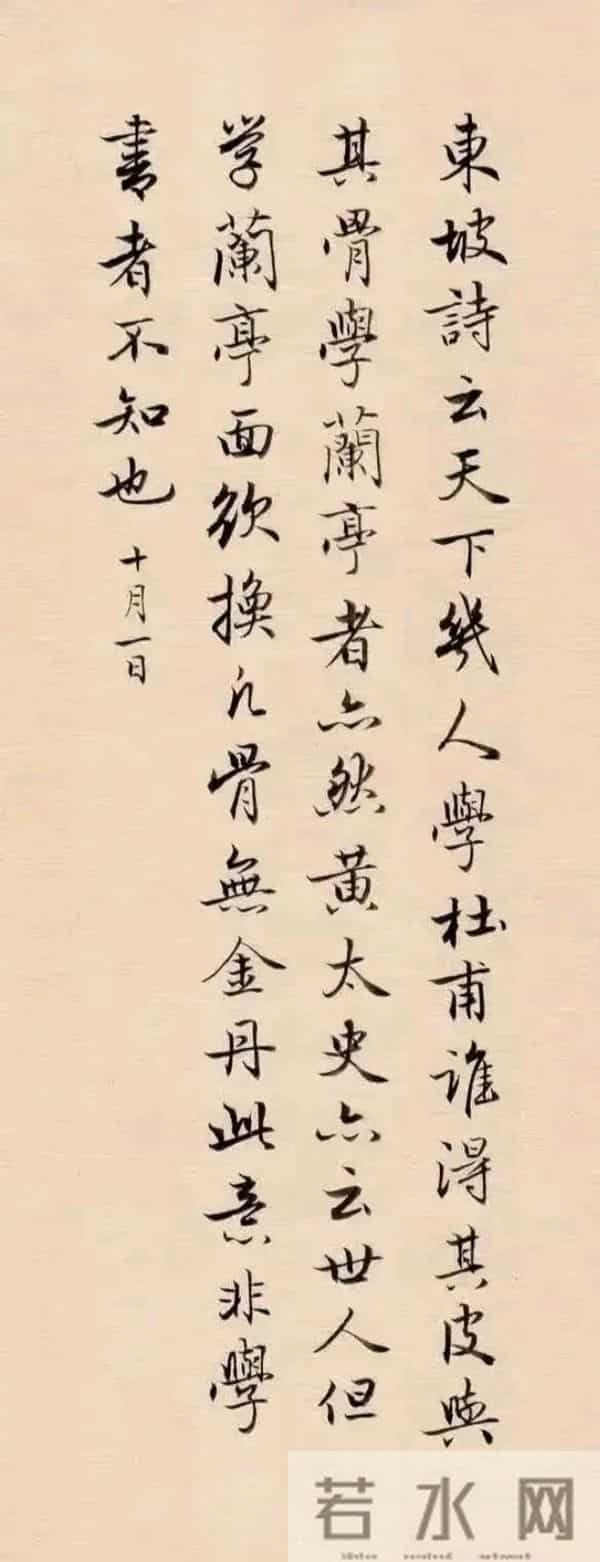 東坡詩云天下幾人學杜甫誰得其皮與
其骨學蘭亭者亦然黃太史亦云世人但
学蘭亭面欲換凡骨無金丹此意非學
書者不知也 十月一日
若水网